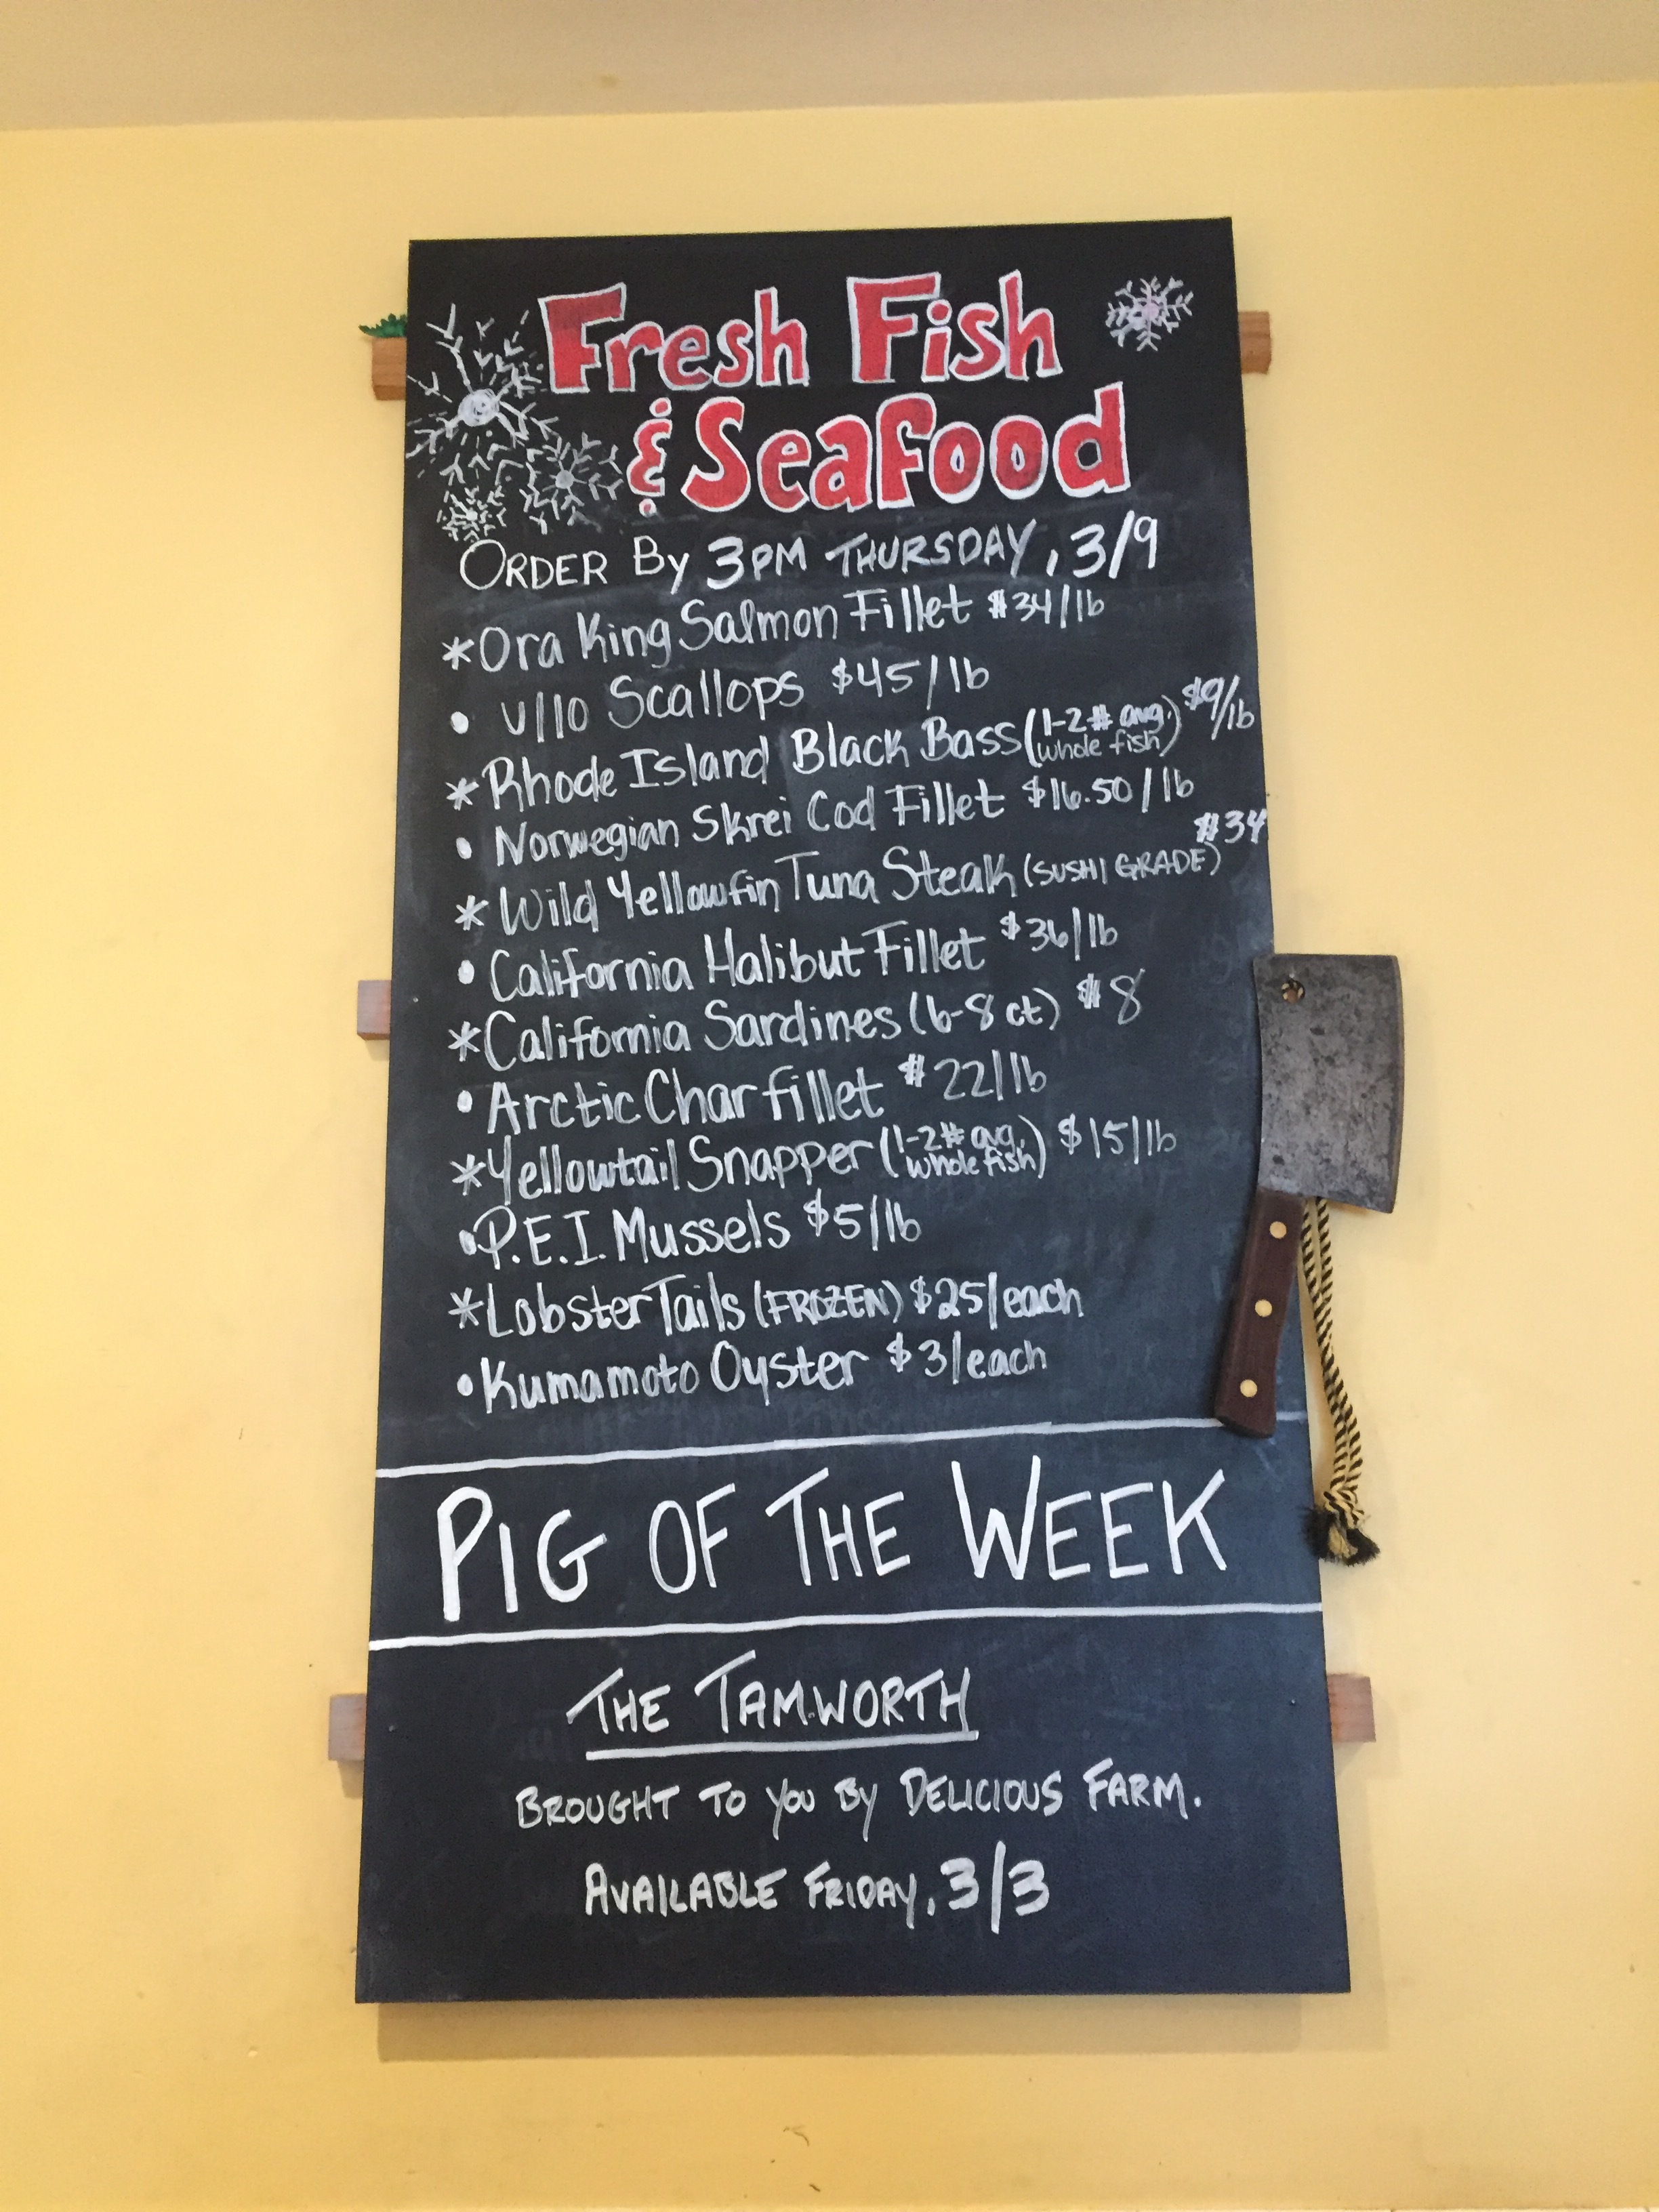 Fresh Fish
& Seafood
ORDER By 3PM THURSDAY, 3/9
*Ora King Salmon Fillet $34/lb
• U/10 Scallops $45/lb
*Rhode Island Black Bass (1-2# avg. whole fish) $9/lb
• Norwegian Skrei Cod Fillet $16.50/lb
*Wild Yellowfin Tuna Steak (SUSHI GRADE) $34
• California Halibut Fillet $36/lb
*California Sardines (6-8 ct) $8
• Arctic Char fillet $22/lb
*Yellowtail Snapper (1-2# avg. whole fish) $15/lb
• P.E.I. Mussels $5/lb
*Lobster Tails (FROZEN) $25/each
• Kumamoto Oyster $3/each
PIG OF THE WEEK
THE TAMWORTH
BROUGHT TO YOU BY DELICIOUS FARM.
AVAILABLE FRIDAY, 3/3